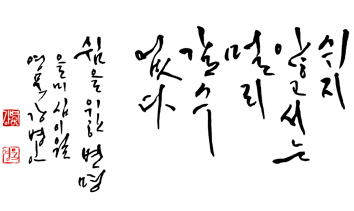 쉬지
않고서는
멀리
갈 수
없다
쉼을 위한 변명
을미 십이월
영묵 강병인